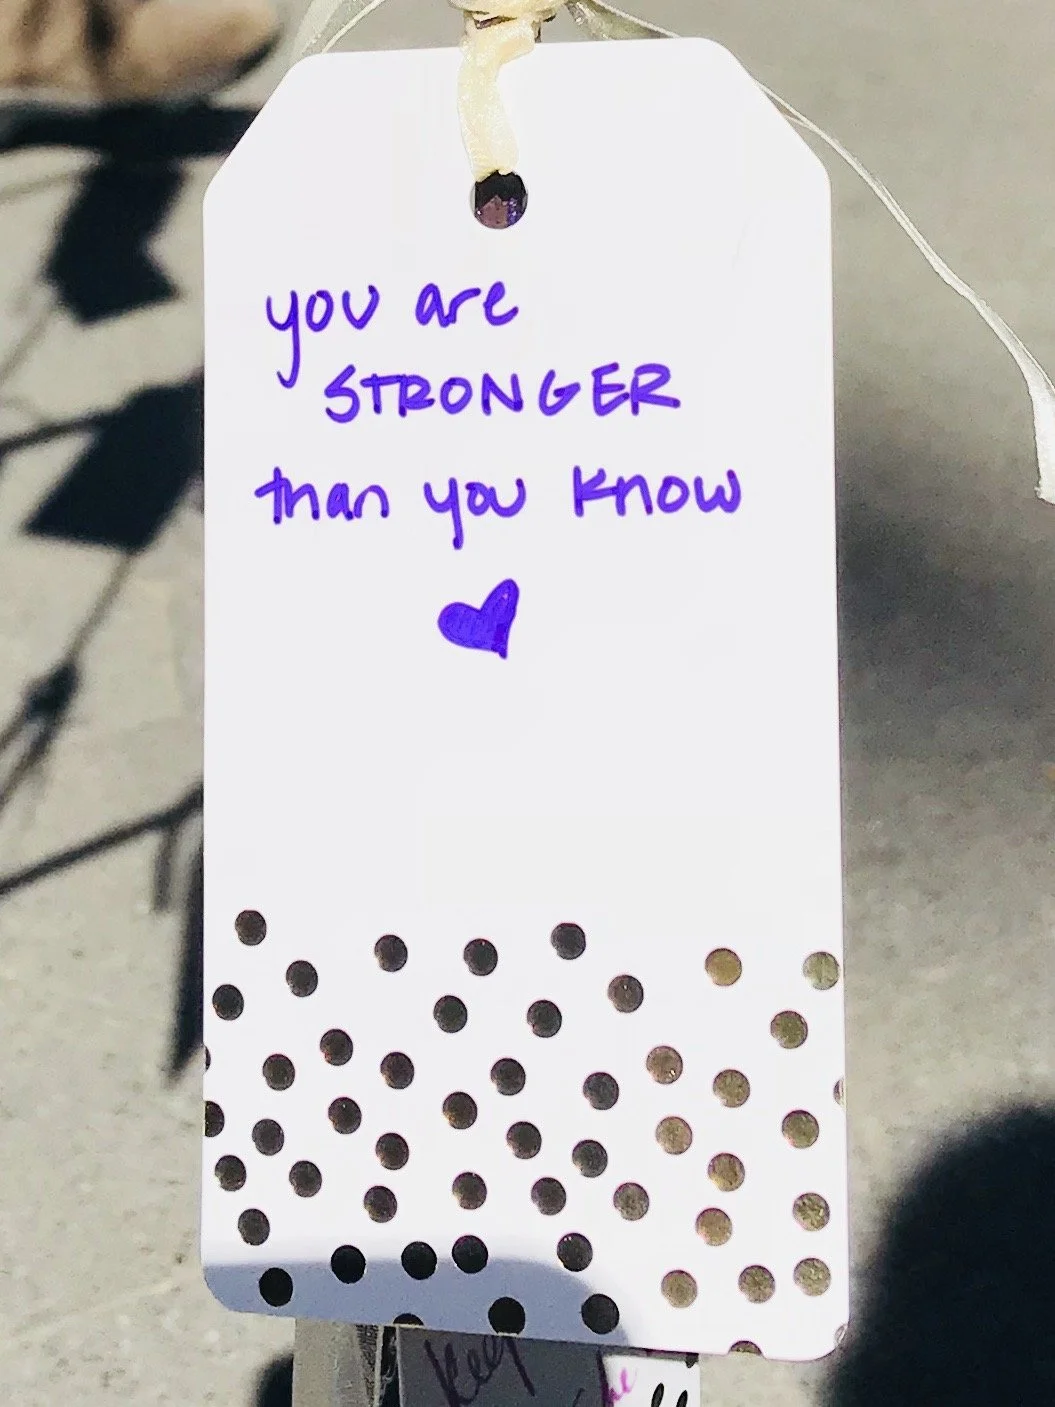 you are
STRONGER
than you know
Keep
the